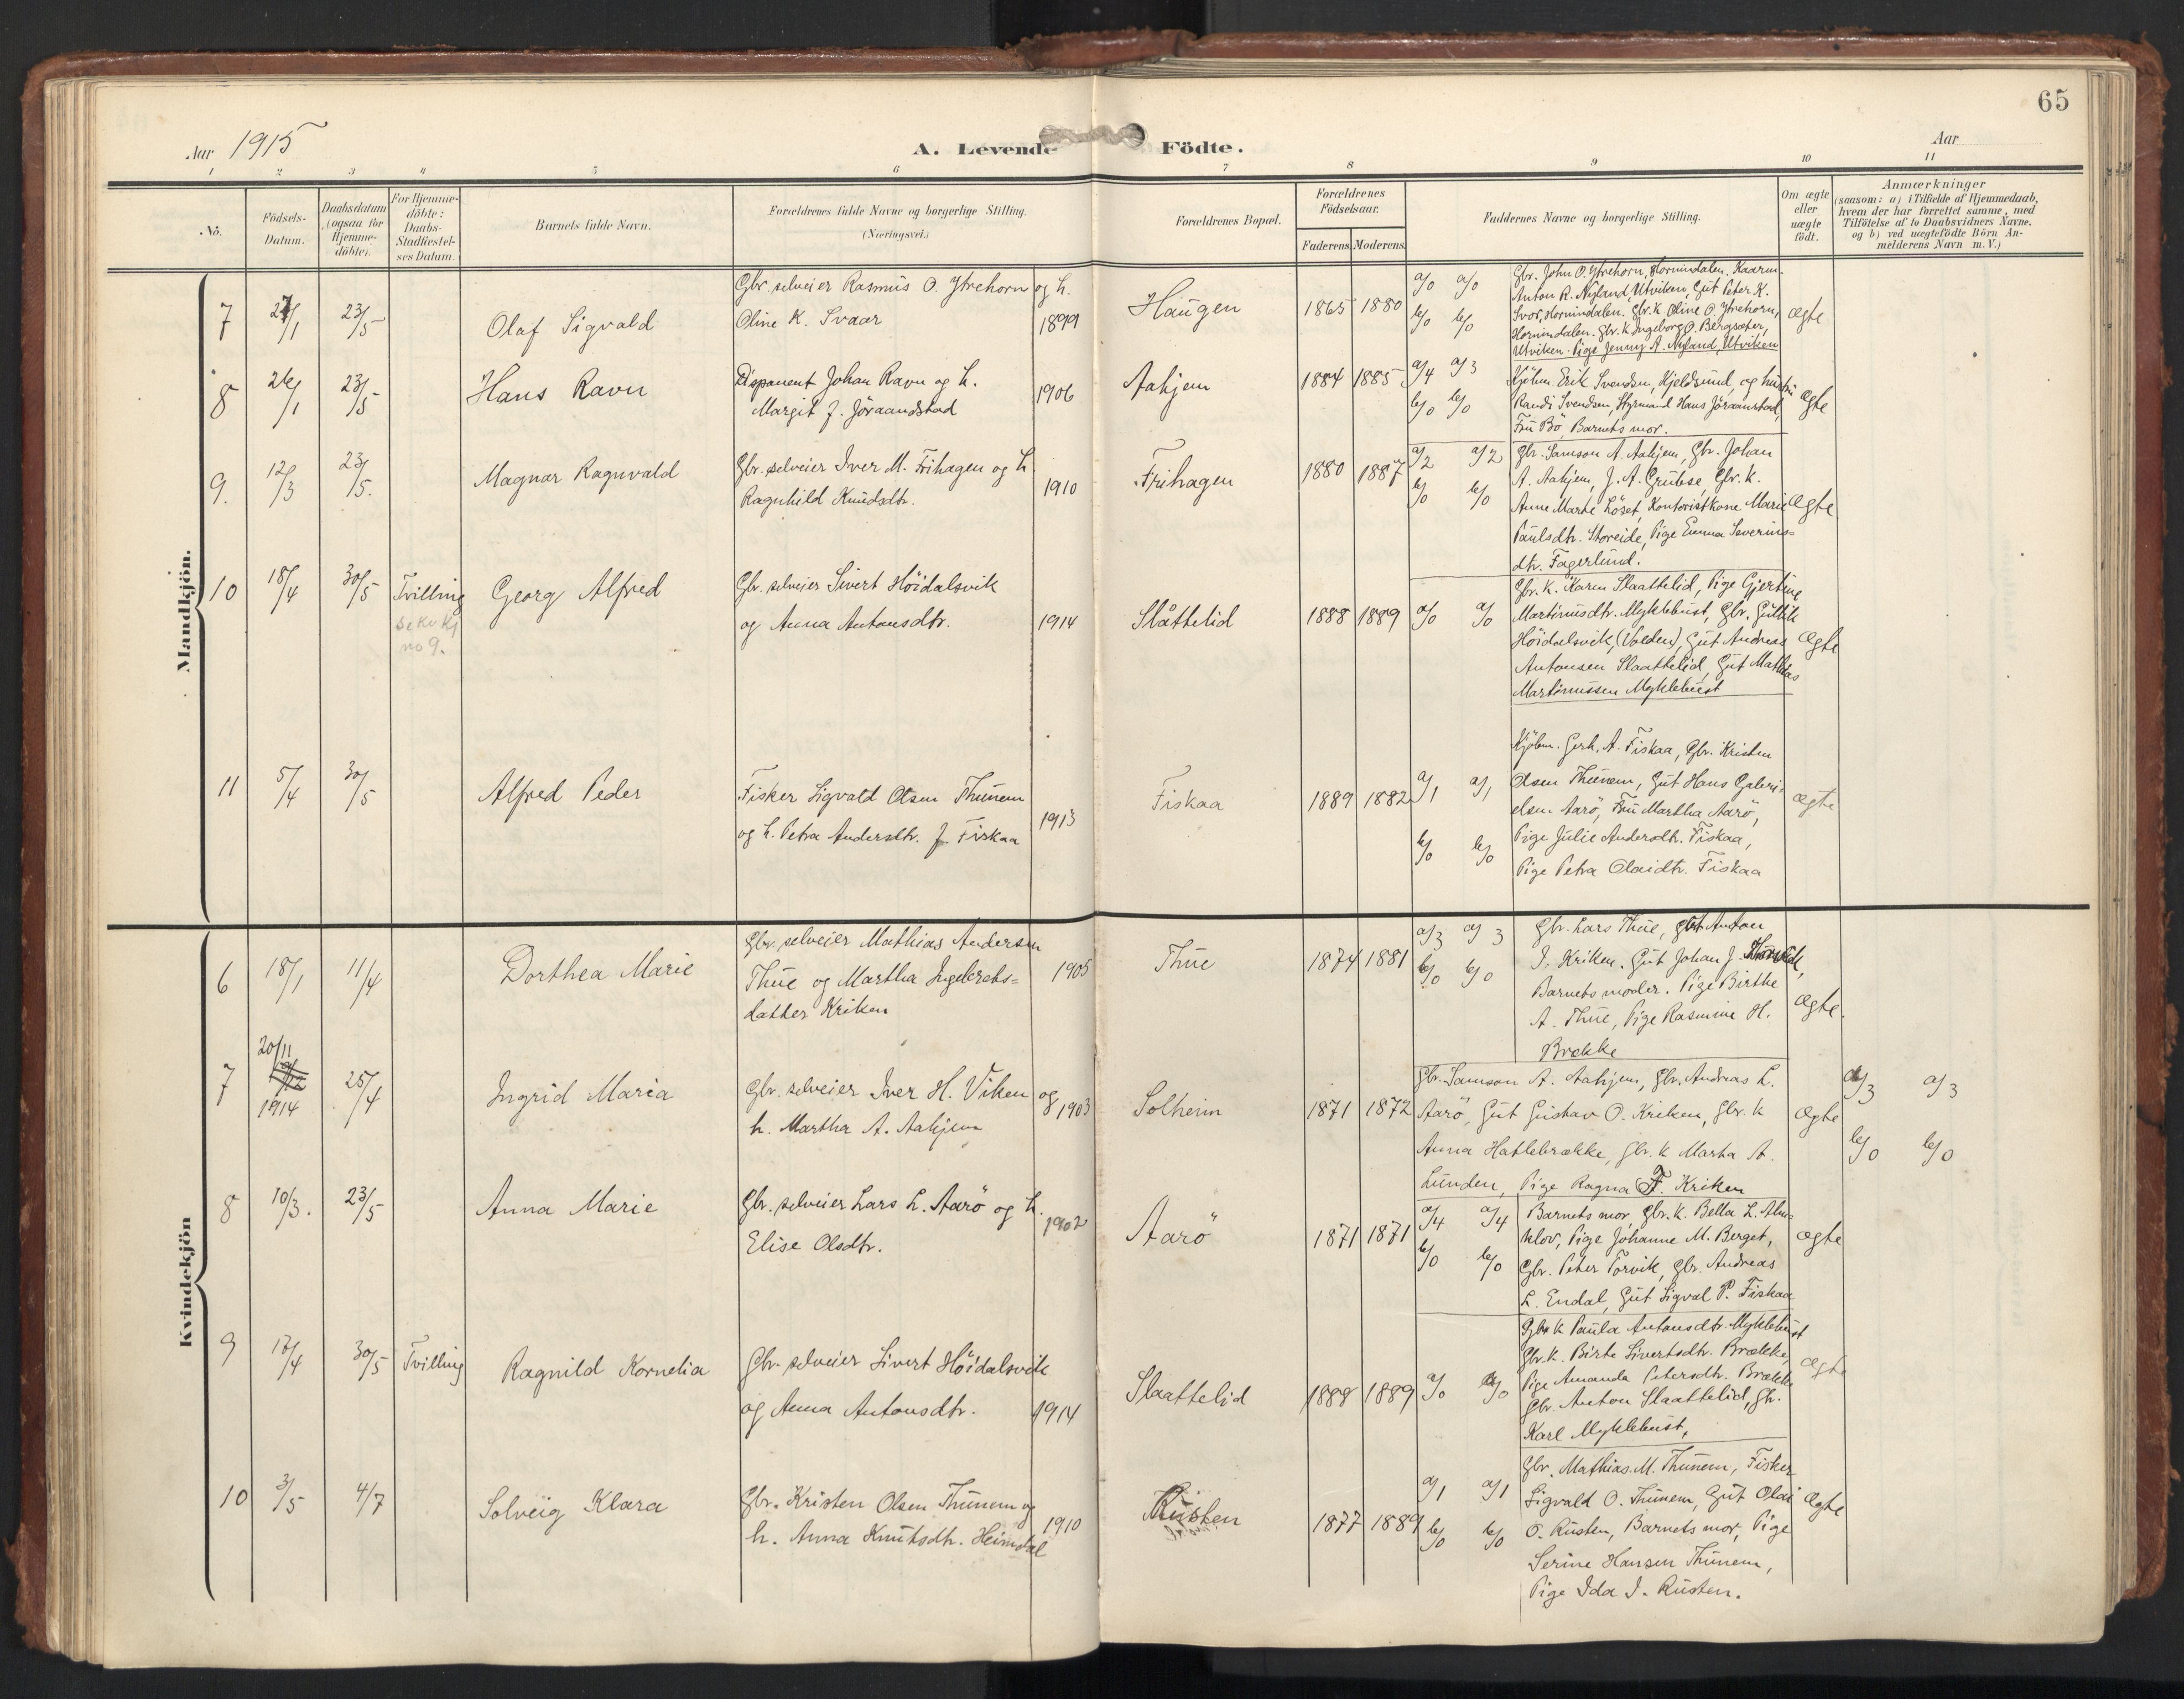 65
Aar 1915
A. Levende Födte.
Aar
1 2 3 4 5 6 7 8 9 10 11
No.
Födsels-
Datum.
Daabsdatum
(ogsaa for
Hjemme-
döbte).
For Hjemme-
döbte:
Daabs-
Stadfæstel-
ses Datum.
Barnets fulde Navn.
Forældrenes fulde Navne og borgerlige Stilling.
(Næringsvei.)
Forældrenes Bopæl.
Forældrenes
Födselsaar.
Faderens. Moderens.
Faddernes Navne og borgerlige Stilling.
Om ægte
eller
uægte
födt.
Anmærkninger
(saasom: a) i Tilfælde af Hjemmedaab,
hvem der har forrettet samme, med
Tilföielse af to Daabsvidners Navne.
og b) ved uægtefödte Börn An-
melderens Navn m. V.)
Mandkjön.
7 /1 23/5
Olaf Sigvald
Gbr. selveier Rasmus O. Ytrehorn og h.
Oline K. Svaar 1899
Haugen
1865 1880
a/0 a/0
b/0 b/0
Gbr. John O. Ytrehorn, Hornindalen.
Anton R. Nyland, Utviken, Gut Peter K.
Svor, Hornindalen. Gbr. k. Oline O. Ytrehorn,
Hornindalen. Gbr. k. Ingeborg O. Bergsæter,
Utviken. Pige Jenny A. Nyland, Utviken
ægte
8 26/1 23/5
Hans Ravn
Disponent Johan Ravn og h.
Margit f. Jöraandstad 1906
Aahjem
1884 1885
a/4 a/3
b/0 b/0
Kjöbm. Erik Svendsen, Kjeldsund, og hustru
Randi Svendsen, Styrmand Hans Jöraanstad,
Fru Bö, Barnets mor.
ægte
9. 12/3 23/5.
Magnar Ragnvald
Gbr. selveier Iver M. Frihagen og h.
Ragnhild Knudsdtr. 1910
Frihagen
1880 1887
a/2 a/2
b/0 b/0
Gbr. Samson A. Aahjem, Gbr. Johan
A. Aahjem, J. A. Grubse, Gbr. k.
Anne Marte Löset, Kontoristkone Marie
Paulsdtr. Storeide, Pige Emma Severins=
dtr. Fagerlund.
ægte
10 18/4 30/5 Tvilling
se kv kj
no 9.
Georg Alfred
Gbr. selveier Sivert Höidalsvik
og Anna Antonsdtr. 1914
Slåttelid
1888 1889
a/0 a/0
Gbr. k. Karen Slaattelid, Pige Gjertine
Martinusdtr. Myklebust, Gbr. Gullik
Höidalsvik, (Volden), Gut Andreas
Antonsen Slaattelid, Gut Mathias
Martinussen Myklebust
ægte
11 5/4 30/5
Alfred Peder
Fisker Sigvald Olsen Thunem
og h. Petra Andersdtr. f. Fiskaa 1913
Fiskaa
1889 1882
a/1 a/1
b/0 b/0
Kjöbm. Gerh. A. Fiskaa, Gbr. Kristen
Olsen Thunem, Gut Hans Galeri-
elsen Aarö, Fru Martha Aarö,
Pige Julie Andersdtr. Fiskaa,
Pige Petra Olaidtr. Fiskaa
ægte
Kvindekjön
6 18/1 11/4
Dorthea Marie
Gbr. selveier Mathias Andersen
Thue og Martha Ingebrets=
datter Kriken 1905
Thue
1874 1881
a/3 a/3
b/0 b/0
Gbr. Lars Thue, gut Anton
I. Kriken. Gut Johan J.
Barnets moder. Pige Birthe
A. Thue, Pige Rasmine H.
Brække
ægte.
7 20/11
1914 25/4
Ingrid Maria
Gbr. selveier Iver H. Viken og
h. Martha A. Aahjem 1903
Solheim
1871 1872
Gbr. Samson A. Aahjem, Gbr. Andreas L.
Aarö, Gut Gustav O. Kriken, Gbr. k
Anna Hatlebrække, Gbr. k Marta A.
Lunden, Pige Ragna F. Kriken
ægte
a/3 a/3
b/0 b/0
8 10/3. 23/5
Anna Marie
Gbr. selveier Lars L. Aarö og h.
Elise Olsdtr. 1902
Aarö
1871 1871
a/4 a/4
b/0 b/0
Barnets mor, Gbr. k. Bella L. Alm=
klov, Pige Johanne M. Berget,
Gbr. Peter Torvik, Gbr. Andreas
L. Endal, Gut Sigval P. Fiskaa
ægte
9 18/4 30/5 Tvilling
Ragnild Kornelia
Gbr. selveier Sivert Höidalsvik
og Anna Antonsdtr. 1914
Slaattelid
1888 1889
a/0 a/0
Gbr. k Paula Antonsdtr. Myklebust
Gbr. k. Birte Sivertsdtr. Brække,
Pige Amanda Petersdtr. Brække
Gbr. Anton Slaattelid, Gbr.
Karl Myklebust,
ægte
10 3/5 4/7
Solveig Klara
Gbr. Kristen Olsen Thunem og
h. Anna Knutsdtr. Heimdal 1910
Rusten
1877 1889
a/1 a/1
b/0 b/0
Gbr. Mathias M. Thunem, Fisker
Sigvald O. Thunem, Gut Olai
O. Rusten, Barnets mor, Pige
Serine Hansen Thunem,
Pige Ida I. Rusten.
ægte